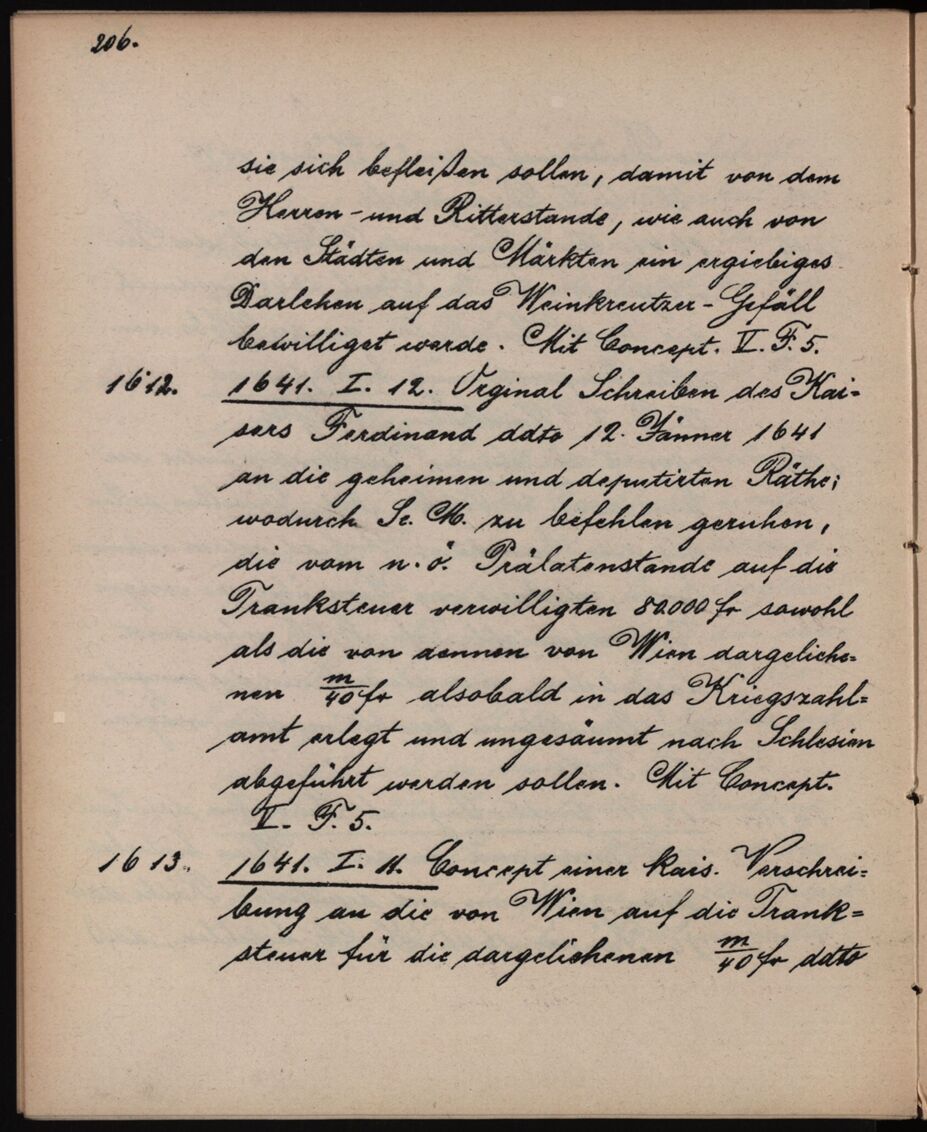 206.
sie sich befleißen sollen, damit von dem
Herren- und Ritterstande, wie auch von
den Städten und Märkten ein ergiebiges
Darlehen auf das Weinkreutzer-Gefäll
bewilliget werde. Mit Concept. V. F. 5.
1612. 1641. I. 12. Orginal Schreiben des Kai=
sers Ferdinand ddto 12. Jänner 1641
an die geheimen und deputirten Räthe;
wodurch Se. M. zu befehlen geruhen,
die vom n. ö. Prälatenstande auf die
Tranksteuer verwilligten 80.000 fr sowohl
als die von dennen von Wien dargeliche=
nen m/40 fr alsobald in das Kriegszahl=
amt erlegt und ungesäumt nach Schlesien
abgeführt werden sollen. Mit Concept.
V. F. 5.
1613. 1641. I. 11. Concept einer kais. Verschrei=
bung an die von Wien auf die Trank=
steuer für die dargelichenen m/40 fr ddto